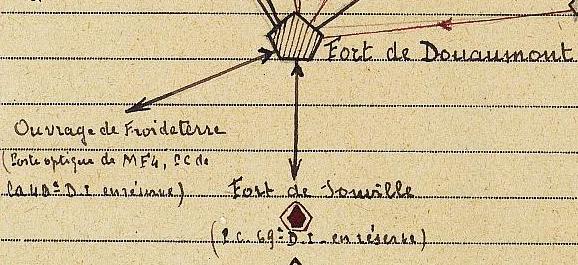 Fort de Douaumont
Ouvrage de Froideterre
(Poste optique de MF4, P.C de
la 40e D.I en réserve)
Fort de Souville
(P.C. 69e D.I. en réserve)